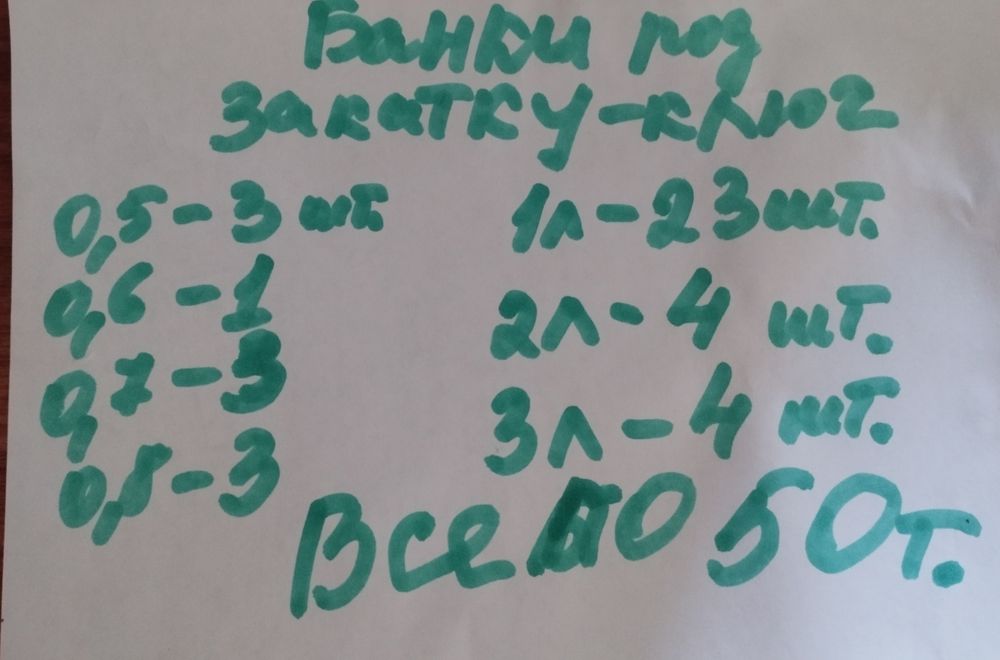 Банки под
закатку-ключ
0,5-3 шт.
0,6-1
0,7-3
0,8-3
1л-23шт.
2л-4 шт.
3л-4 шт.
Все по 50т.